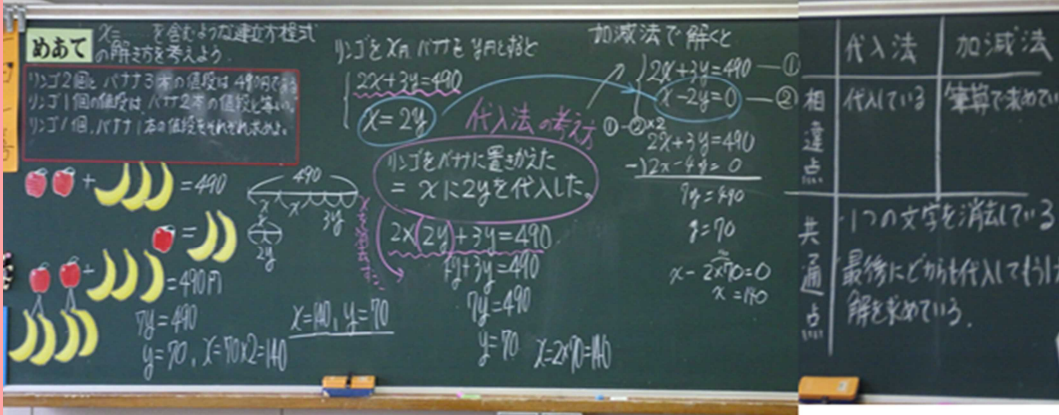 めあて
x=... を含むような連立方程式
の解き方を考えよう。
リンゴ2個とバナナ3本の値段は490円である。
リンゴ1個の値段はバナナ2本の値段と等しい。
リンゴ1個、バナナ1本の値段をそれぞれ求めよ。
+ =490
=
+ =490円
7y=490
y=70, x=70×2=140
490
x x 3y
2y
x=140, y=70
リンゴをx円 バナナを y円とすると
2x+3y=490
x=2y
代入法の考え方
リンゴをバナナに置きかえた
= xに2yを代入した。
2×(2y)+3y=490
4y+3y=490
7y=490
y=70 x=2×70=140
加減法で解くと
2x+3y=490 ―①
x-2y=0 ―②
①-②×2
2x+3y=490
-)2x-4y=0
7y=490
y=70
x-2×70=0
x=140
代入法 加減法
相違点 代入している 筆算で求めてい
共通点
・1つの文字を消去している
最後にどちらも代入してもう1
解を求めている.